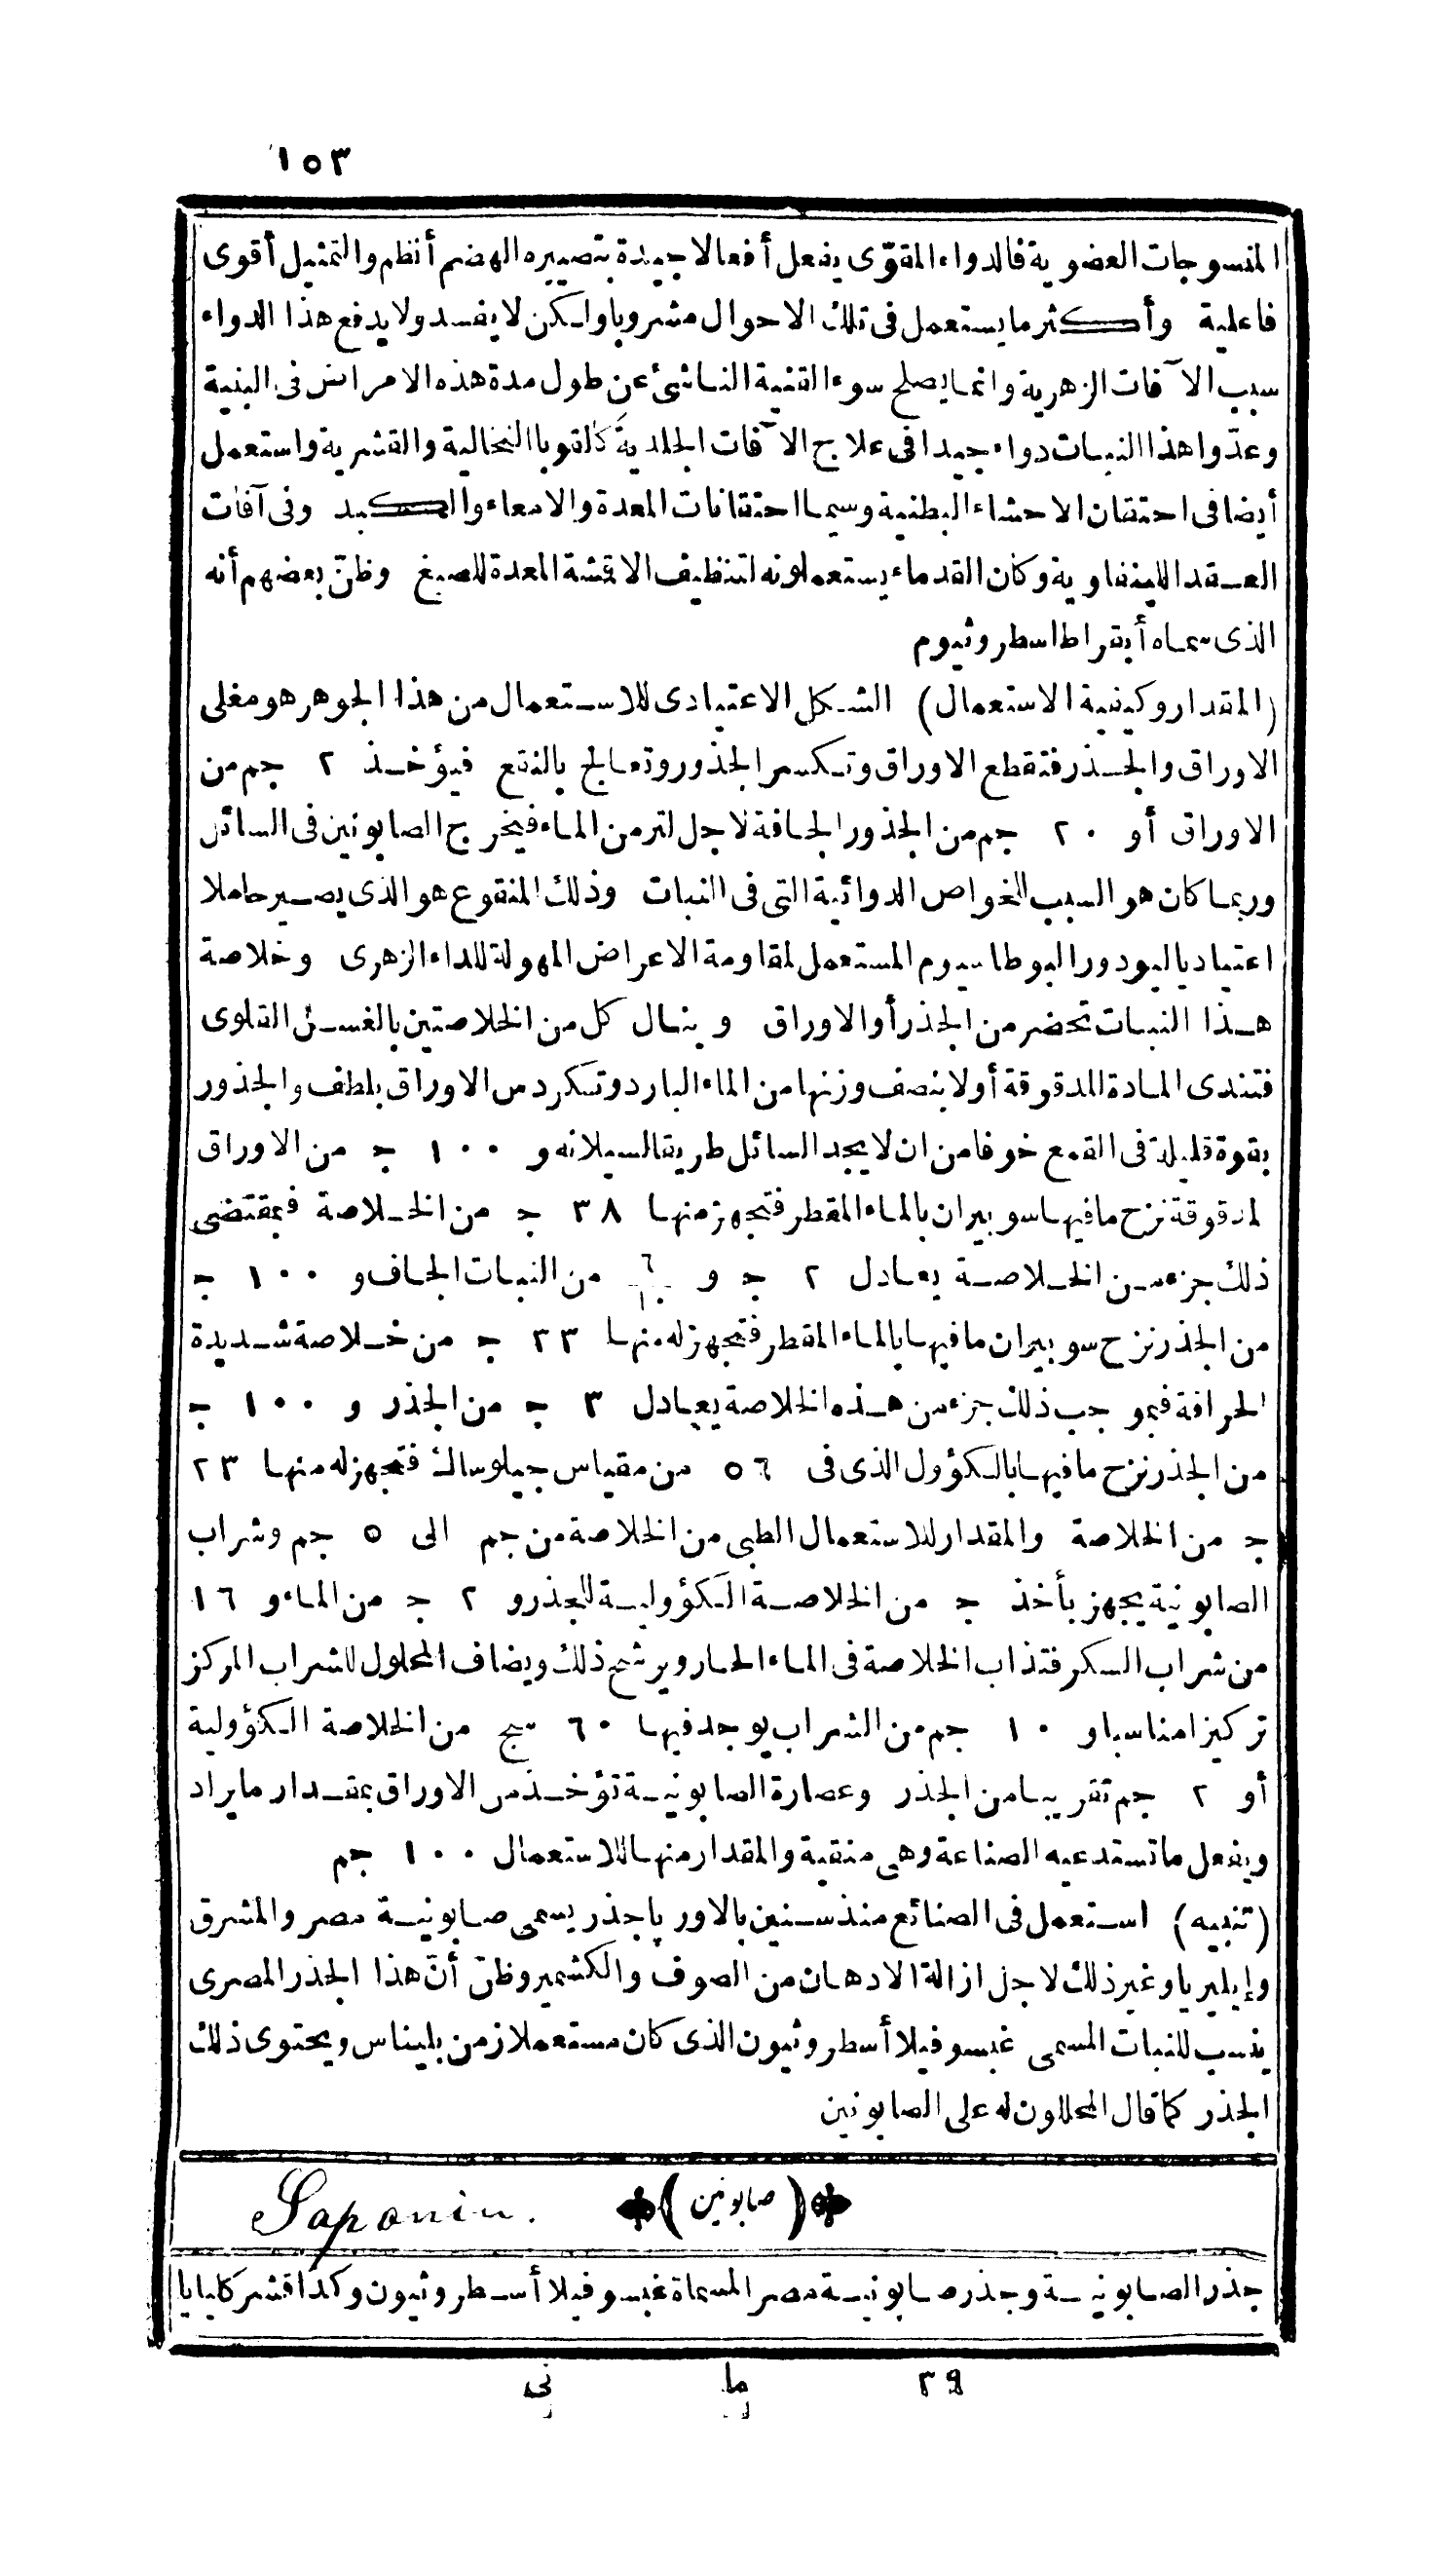 ١٥٣
المنسوجات العضوية فالدواء المقوّى يفعل أفعالا جيدة بتصييره الهضم أنظم والتمثيل أقوى
فاعلية وأكثر ما يستعمل فى تلك الاحوال مشروبا ولكن لا يفسد ولا يدفع هذا الدواء
سبب الآفات الزهرية وانما يصلح سوء القنية الناشئ عن طول مدة هذه الامراض فى البنية
وعدّوا هذا النبات دواء جيدا فى علاج الآفات الجلدية كالقوبا النخالية والقشرية واستعمل
أيضا فى احتقان الاحشاء البطنية وسيما احتقانات المعدة والامعاء والكبد وفى آفات
العقد اللينفاوية وكان القدماء يستعملونه لتنظيف الاقشة المعدة للصبغ وظنّ بعضهم أنه
الذى سماه أبقراط اسطروثيوم
(المقدار وكيفية الاستعمال) الشكل الاعتيادى للاستعمال من هذا الجوهر هو مغلى
الاوراق والجذر فتقطع الاوراق وتكسر الجذور وتعالج بالنقع فيؤخذ ٢ جم من
الاوراق أو ٢٠ جم من الجذور الجافة لاجل لتر من الماء فيخرج الصابونين فى السائل
وربما كان هو السبب للخواص الدوائية التى فى النبات وذلك المنقوع هو الذى يصير حاملا
اعتياديا ليودور البوطاسيوم المستعمل لمقاومة الاعراض المهولة للداء الزهرى وخلاصة
هذا النبات تحضر من الجذر أو الاوراق وينال كل من الخلاصتين بالغسل القلوى
فتندى المادة المدقوقة أولا بنصف وزنها من الماء البارد وتكردس الاوراق بلطف والجذور
بقوة قليلة فى القمع خوفا من ان لا يجد السائل طريقا لسيلانه و ١٠٠ ج من الاوراق
لمدقوقة نزح ما فيها سوبيران بالماء المقطر فتجهز منها ٣٨ ج من الخلاصة فبمقتضى
ذلك جزء من الخلاصة يعادل ٢ ج و ٦/١٠ من النبات الجاف و ١٠٠ ج
من الجذر نزح سوبيران ما فيها بالماء المقطر فتجهز له منها ٣٣ ج من خلاصة شديدة
الحرافة فبموجب ذلك جزء من هذه الخلاصة يعادل ٣ ج من الجذر و ١٠٠ ج
من الجذر نزح ما فيها بالكؤول الذى فى ٥٦ من مقياس جيلوساك فتجهز له منها ٢٣
ج من الخلاصة والمقدار للاستعمال الطبى من الخلاصة من جم الى ٥ جم وشراب
الصابونية يجهز بأخذ ج من الخلاصة الكؤولية للجذر و ٢ ج من الماء و ١٦
من شراب السكر فتذاب الخلاصة فى الماء الحار ويرشح ذلك ويضاف المحلول للشراب المركز
تركيزا مناسبا و ١٠ جم من الشراب يوجد فيها ٦٠ سج من الخلاصة الكؤولية
أو ٢ جم تقريبا من الجذر وعصارة الصابونية تؤخذ من الاوراق بمقدار ما يراد
ويفعل ما تستدعيه الصناعة وهى منقية والمقدار منها للاستعمال ١٠٠ جم
(تنبيه) استعمل فى الصنائع منذ سنين بالاورپا جذر يسمى صابونية مصر والمشرق
وإيليريا وغير ذلك لاجل ازالة الادهان من الصوف والكشمير وظنّ أنّ هذا الجذر المصرى
ينسب للنبات المسمى غبسوفيلا أسطروثيون الذى كان مستعملا زمن بليناس ويحتوى ذلك
الجذر كما قال المحللون له على الصابونين
(صابونين) Saponin.
جذر الصابونية وجذر صابونية مصر المسماة غبسوفيلا أسطروثيون وكذا قشر كايايا
٣٩ ما نى